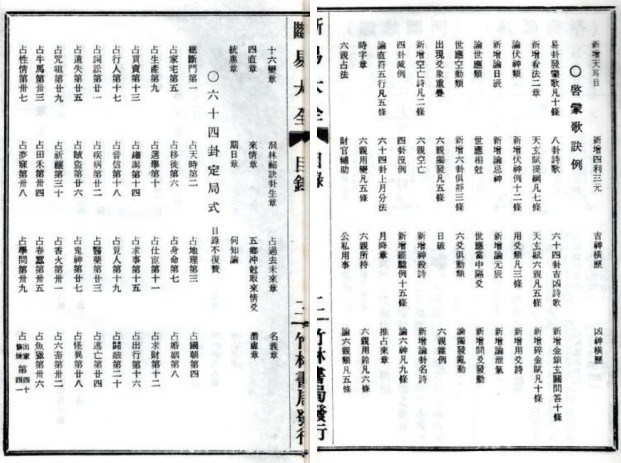 新增天耳目 新增四利三元 吉神橫歷 凶神橫歷
○啓蒙歌訣例
易卦發蒙歌凡十條 八卦詩歌 六十四卦吉凶詩歌 新增金鎖玄關問答十條
新增看法二章 天玄賦提綱凡七條 天玄賦六親凡五條 新增碎金賦凡十條
論伏神類 新增伏神例十二條 用爻類凡三條 新增用爻詩
新增論日辰 新增論忌神 新增論元辰 新增論泄氣
論世應類 世應相剋 世應當中隔爻 新增間爻發動
世應空動類 新增六卦俱靜三條 六爻俱動類 論獨發亂動
出現爻象重疊 六親獨發凡五條 日破 六親雜例
新增空亡詩凡二條 六親空亡 新增神殺詩 新增論卦名詩
四卦減例 四卦沒例 新增經驗例十五條 論六神凡九條
論直符五行凡五條 六十四卦上月分法 月降章 推占來章
時字章 六親用變凡五條 六親所持 六親用餘凡六條
六親占法 財官輔助 公私用事 論六親類凡五條
斷易大全 目錄 二 竹林書局發行
斷易大全 目錄 二 竹林書局發行
十六變章 洞林秘訣卦生章 占過去未來章 名義章
四直章 來情章 五鄉沖剋取來情爻 潛虛章
統應章 期日章 何知論
○六十四卦定局式 目錄不復贅
總斷門第一 占天時第二 占地理第三 占國朝第四
占家宅第五 占移徙第六 占身命第七 占婚姻第八
占生產第九 占選舉第十 占仕宦第十一 占求財第十二
占買賣第十三 占趨謁第十四 占求事第十五 占出行第十六
占行人第十七 占音信第十八 占見人第十九 占鬪毆第二十
占詞訟第廿一 占疾病第廿二 占醫藥第廿三 占逃亡第廿四
占遺失第廿五 占賊盜第廿六 占鬼神第廿七 占怪異第廿八
占咒咀第廿九 占祈禳第三十 占香火第卅一 占六畜第卅二
占牛馬第卅三 占田禾第卅四 占春蠶第卅五 占魚獵第卅六
占性情第卅七 占夢寐第卅八 占學問第卅九 占出家修煉第四十四一